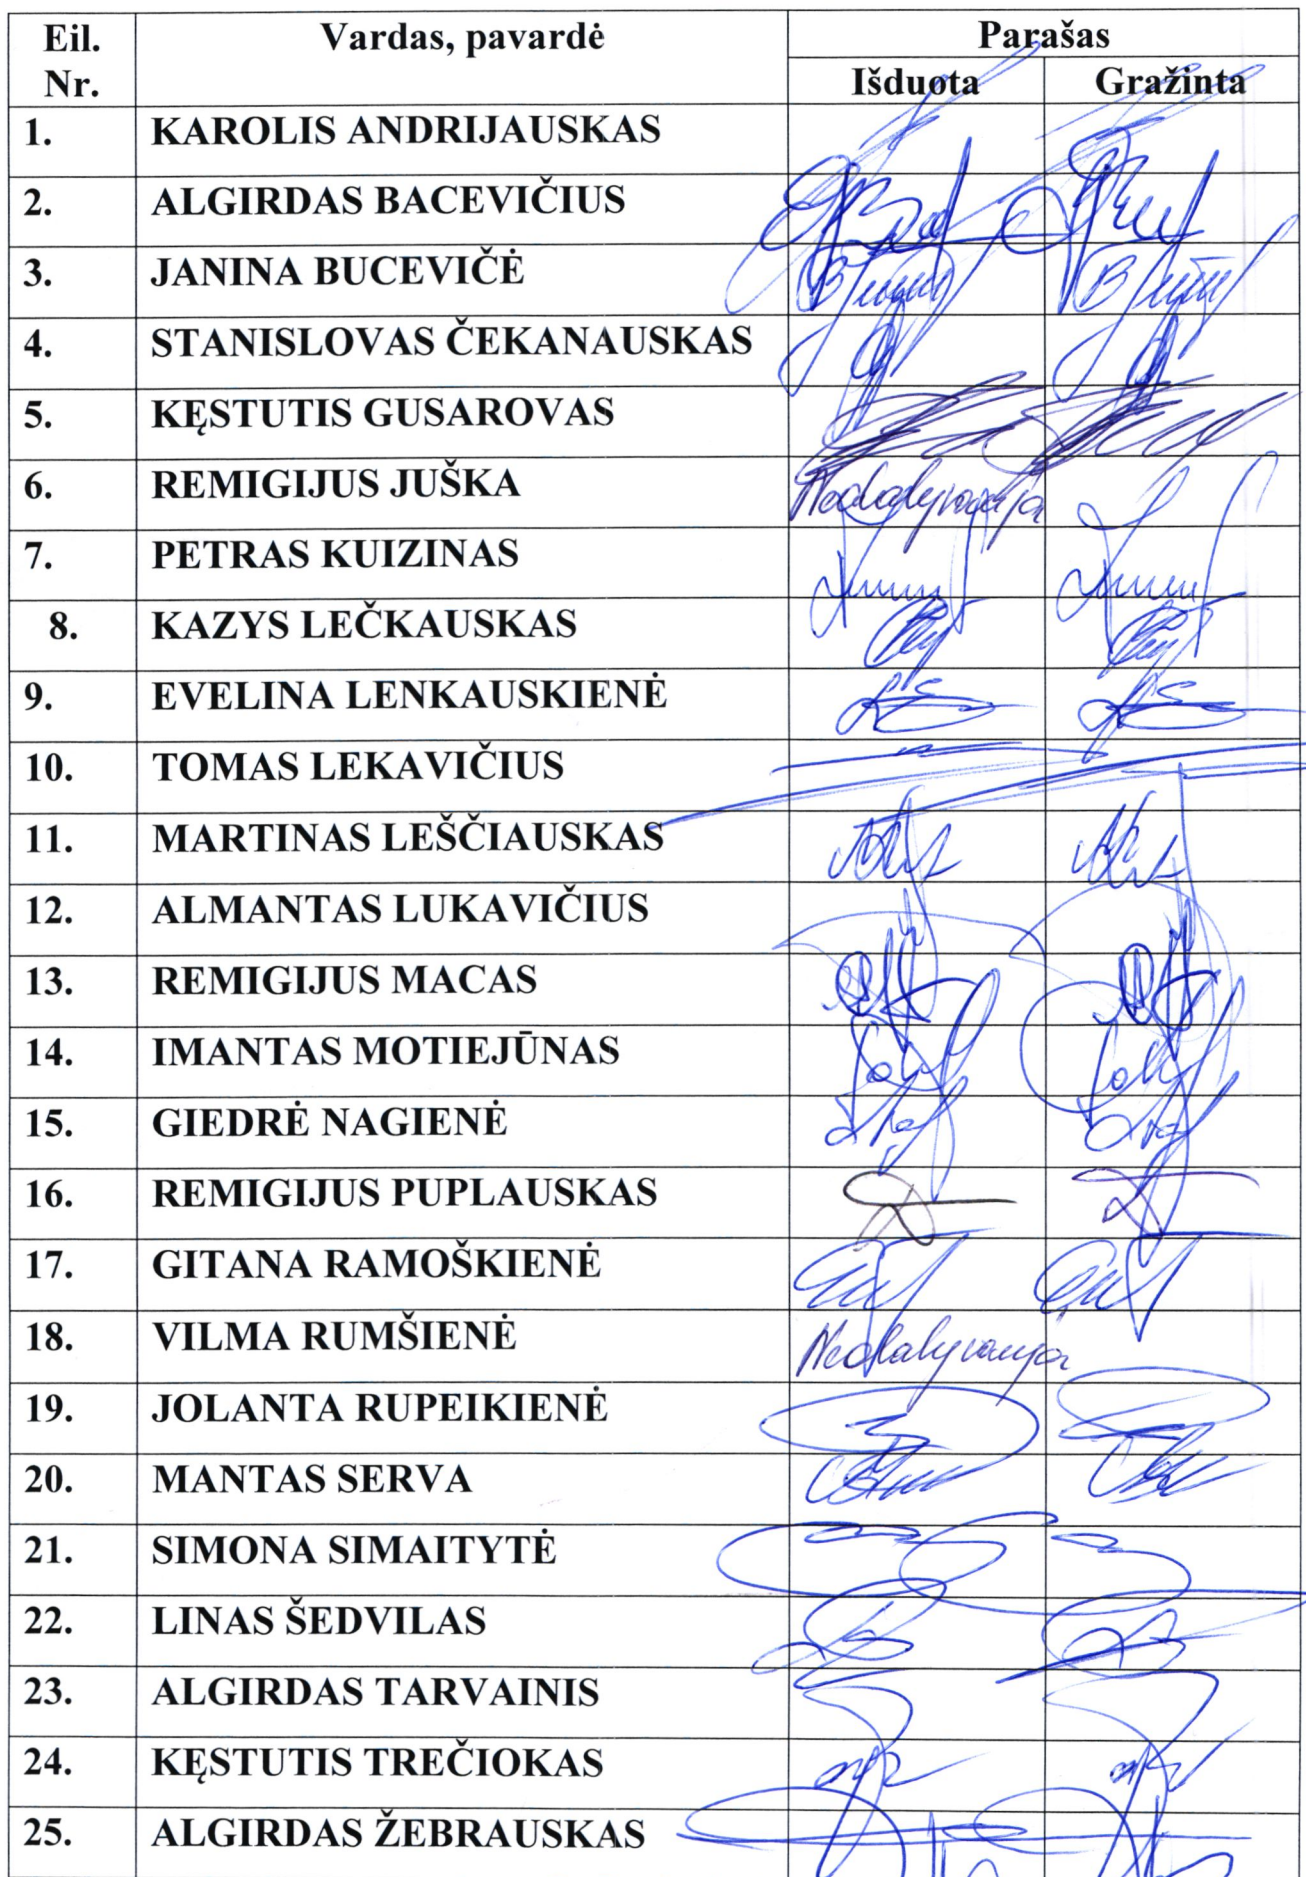 Eil. Nr. Vardas, pavardė Parašas
Išduota Gražinta
1. KAROLIS ANDRIJAUSKAS
2. ALGIRDAS BACEVIČIUS
3. JANINA BUCEVIČĖ
4. STANISLOVAS ČEKANAUSKAS
5. KĘSTUTIS GUSAROVAS
6. REMIGIJUS JUŠKA Nedalyvauja
7. PETRAS KUIZINAS
8. KAZYS LEČKAUSKAS
9. EVELINA LENKAUSKIENĖ
10. TOMAS LEKAVIČIUS
11. MARTINAS LEŠČIAUSKAS
12. ALMANTAS LUKAVIČIUS
13. REMIGIJUS MACAS
14. IMANTAS MOTIEJŪNAS
15. GIEDRĖ NAGIENĖ
16. REMIGIJUS PUPLAUSKAS
17. GITANA RAMOŠKIENĖ
18. VILMA RUMŠIENĖ Nedalyvauja
19. JOLANTA RUPEIKIENĖ
20. MANTAS SERVA
21. SIMONA SIMAITYTĖ
22. LINAS ŠEDVILAS
23. ALGIRDAS TARVAINIS
24. KĘSTUTIS TREČIOKAS
25. ALGIRDAS ŽEBRAUSKAS